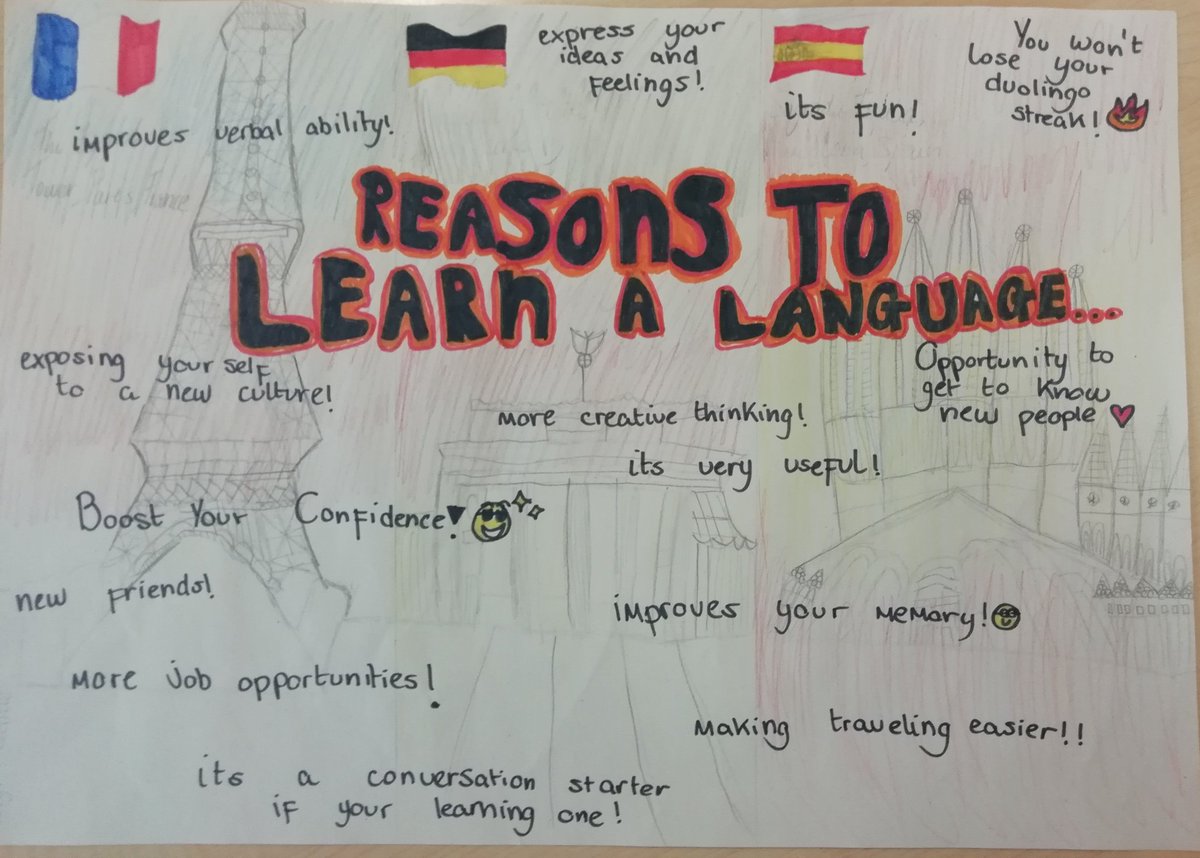 express your
ideas and
feelings!
You won't
lose your
duolingo
streak!
its fun!
improves verbal ability!
REASONS TO
LEARN A LANGUAGE...
exposing yourself
to a new culture!
Opportunity to
get to know
new people
more creative thinking!
its very useful!
Boost Your Confidence!
new friends!
improves your memory!
more job opportunities!
making traveling easier!!
its a conversation starter
if your learning one!